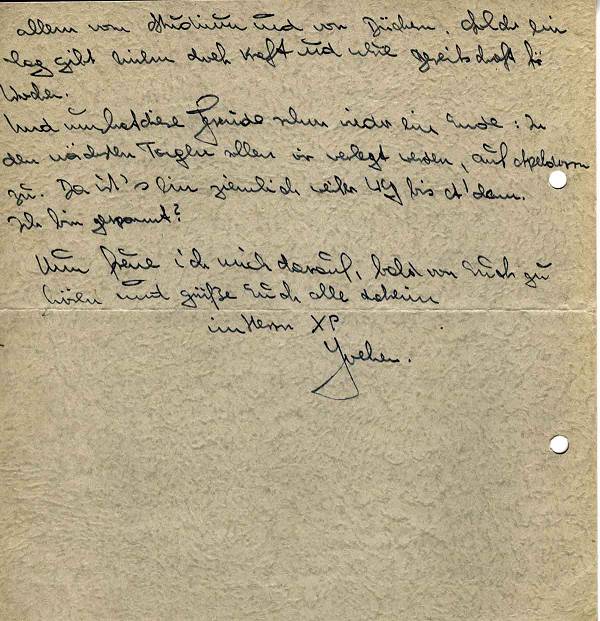 allem vom Studium und von Büchern. Solch ein
Tag gibt einem doch Kraft und neue Bereitschaft für
Wochen.
Und nun hat diese Freude schon wieder ein Ende: In
den nächsten Tagen sollen wir verlegt werden, auf Apeldoorn
zu. Da ist's ein ziemlich weiter Weg bis A'dam.
Ich bin gespannt?
Nun freue ich mich darauf, bald von Euch zu
hören und grüße Euch alle daheim
im Herrn XP
Jochen.